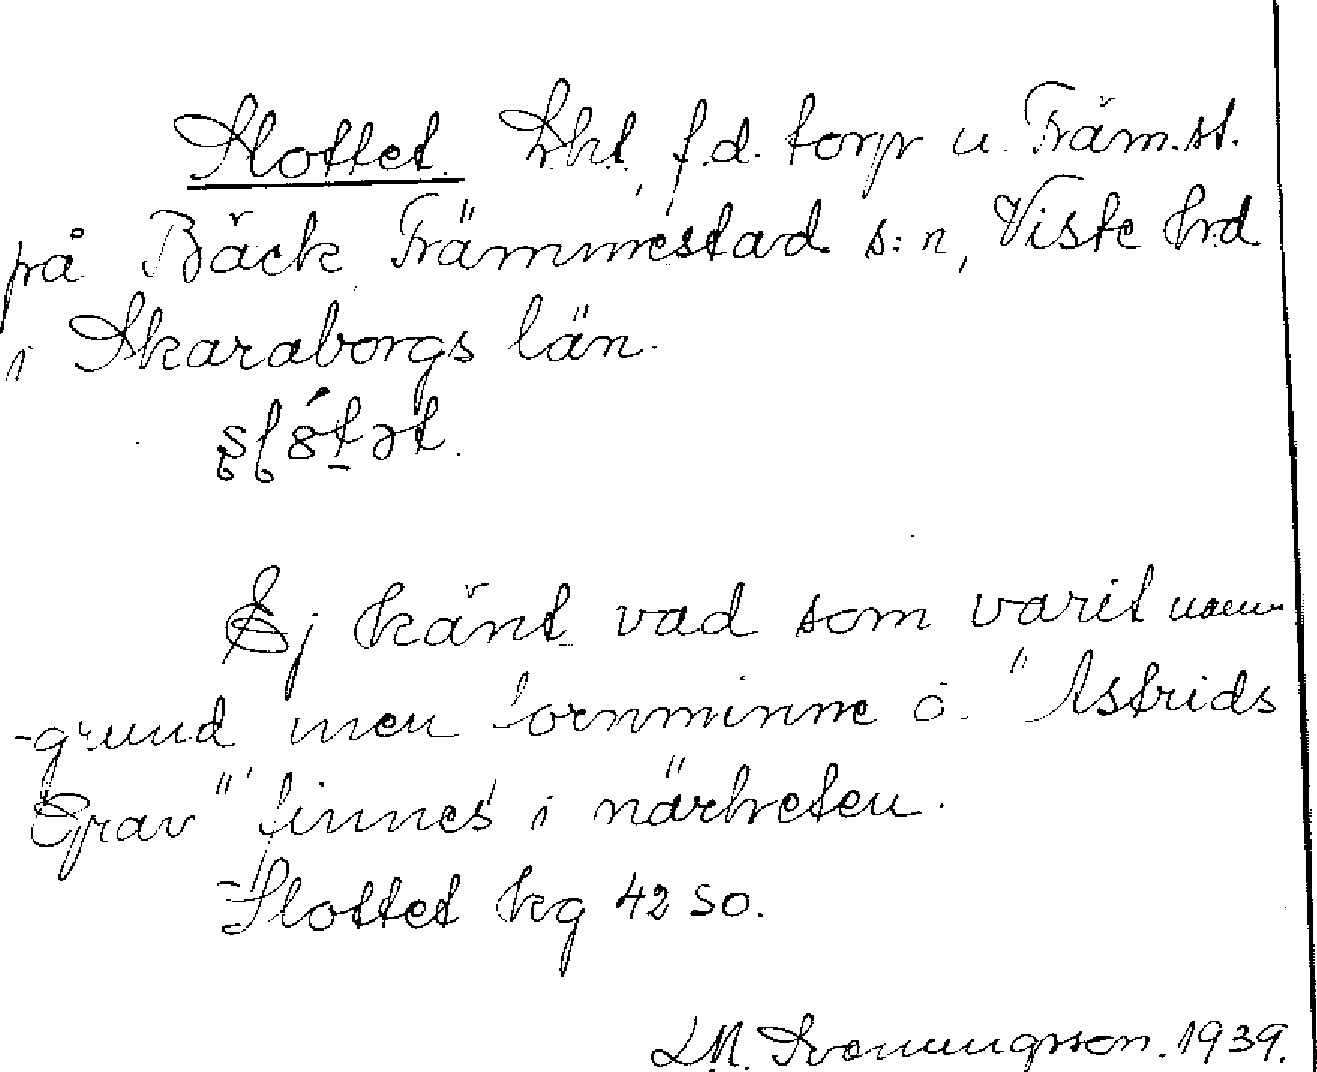 Slottet. Lht, f.d. torp u. Främ.st.
på Bäck Främmestad s:n, Viste hrd
i Skaraborgs län.
Ej känt vad som varit namn
-grund men fornminne ö. "Astrids
Grav" finnes i närheten.
Slottet kg 42 SO.
L.M. Svenungsson. 1939.